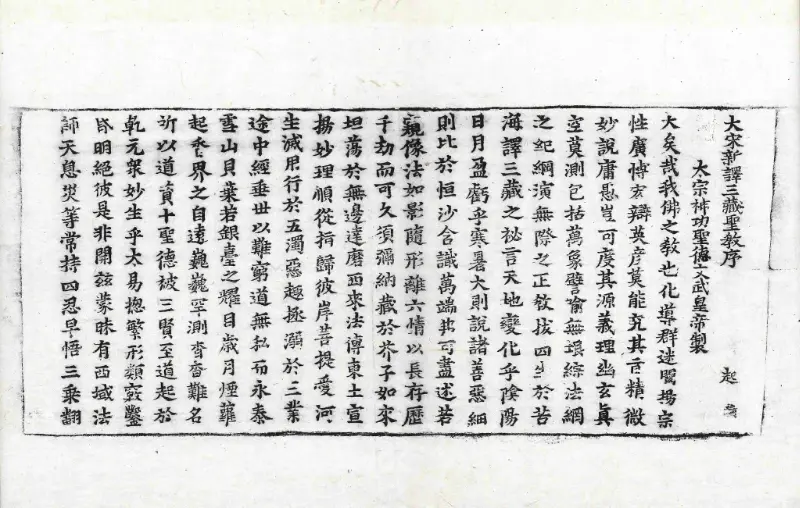 大宋新譯三藏聖教序 起
太宗神功聖德文武皇帝製
大矣哉我佛之敎也化導群迷闡揚宗
性廣博宏辯英彦莫能究其旨精微
妙說庸愚豈可度其源義理幽玄眞
空莫測包括萬象譬喻無垠綜法網
之紀綱演無際之正敎拔四生於苦
海譯三藏之祕言天地變化乎隂陽
日月盈虧乎寒暑大則說諸善惡細
則比於恒沙含識萬端弗可盡述若
窺像法如影隨形離六情以長存歷
千劫而可久須彌納藏於芥子如來
坦蕩於無邊達磨西來法傳東土宣
揚妙理順從指歸彼岸菩提愛河
生滅用行於五濁惡趣拯溺於三業
途中經垂世以難窮道無私而永泰
雪山貝葉若銀臺之耀目歲月煙蘿
起香界之自遠巍巍罕測杳杳難名
所以道資十聖德被三賢至道起於
乹元衆妙生乎太易揔繁形類竅鑿
昏明絶彼是非開兹蒙昧有西域法
師天息災等常持四忍早悟三乘翻